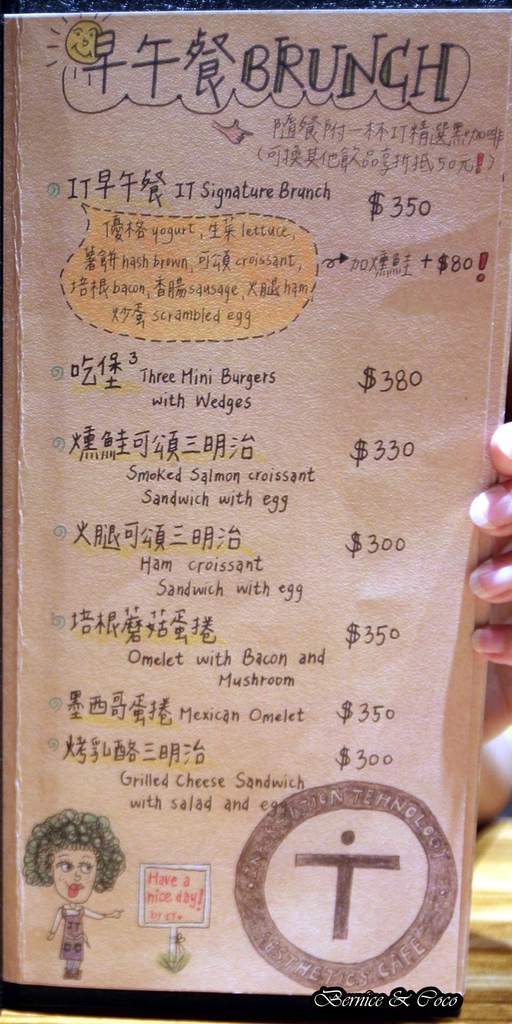 早午餐 BRUNCH
隨餐附一杯IT精選黑咖啡
(可換其他飲品享折抵50元!)
IT早午餐 IT Signature Brunch $350
優格 yogurt, 生菜 lettuce,
薯餅 hash brown, 可頌 croissant,
培根 bacon, 香腸 sausage, 火腿 ham
炒蛋 scrambled egg
加燻鮭 + $80!
吃堡3 Three Mini Burgers $380
with Wedges
燻鮭可頌三明治 $330
Smoked Salmon croissant
Sandwich with egg
火腿可頌三明治 $300
Ham croissant
Sandwich with egg
培根蘑菇蛋捲 $350
Omelet with Bacon and
Mushroom
墨西哥蛋捲 Mexican Omelet $350
烤乳酪三明治 $300
Grilled Cheese Sandwich
with salad and egg
Have a
nice day!
by IT
AESTHETICS CAFE
Bernice & Coco